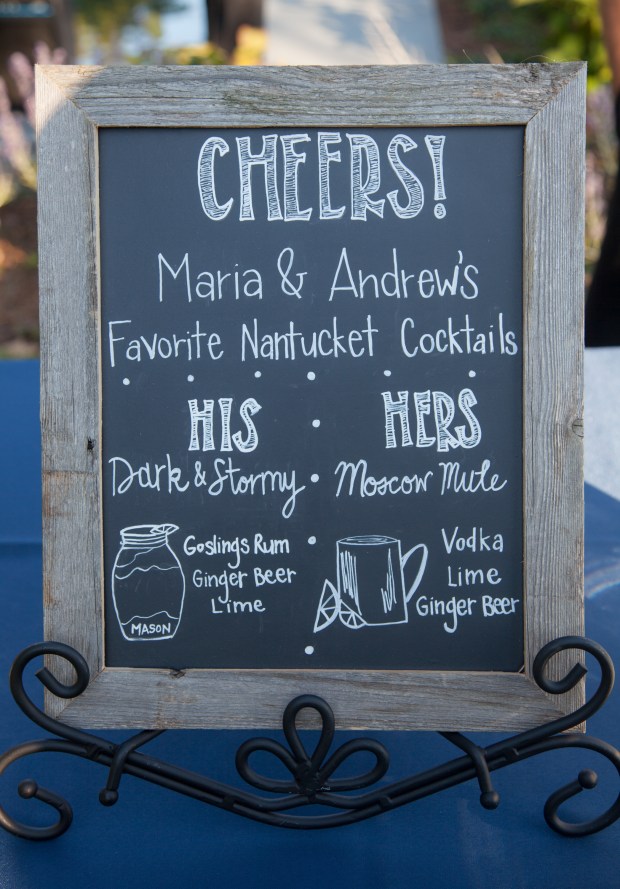 CHEERS!
Maria & Andrew's
Favorite Nantucket Cocktails
HIS
Dark & Stormy
Goslings Rum
Ginger Beer
Lime
MASON
HERS
Moscow Mule
Vodka
Lime
Ginger Beer